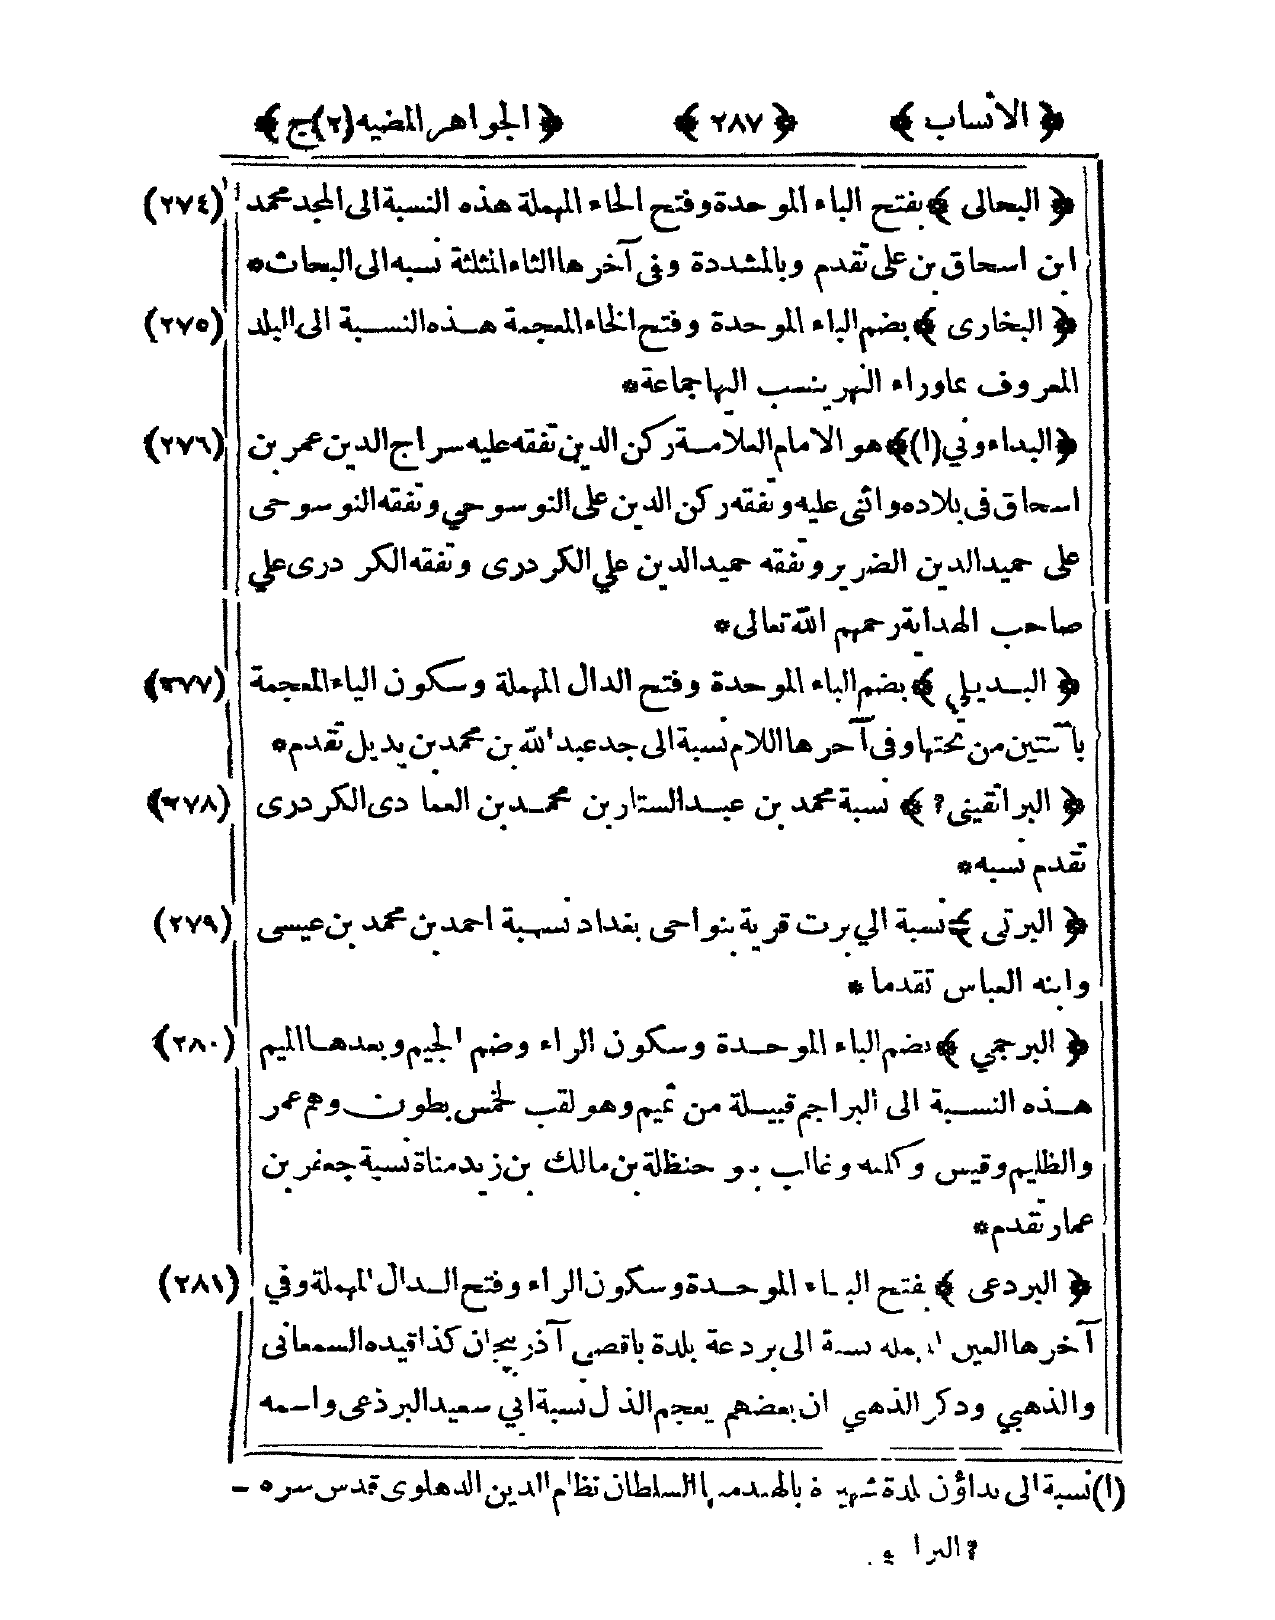 ﴿ الأنساب ﴾ ﴿ ٢٨٧ ﴾ ﴿ الجواهر المضيه (٢) ج ﴾
﴿ البحاثى ﴾ بفتح الباء الموحدة وفتح الحاء المهملة هذه النسبة الى المجد محمد (٢٧٤)
ابن اسحاق بن على تقدم وبالمشددة وفى آخرها الثاء المثلثة نسبه الى البحاث *
﴿ البخارى ﴾ بضم الباء الموحدة وفتح الخاء المعجمة هذه النسبة الى البلد (٢٧٥)
المعروف بماوراء النهر ينسب اليها جماعة *
﴿ البداءوني (١) ﴾ هو الامام العلامة ركن الدين تفقه عليه سراج الدين عمر بن (٢٧٦)
اسحاق فى بلاده واثنى عليه وتفقه ركن الدين على النوسوحي وتفقه النوسوحى
على حميد الدين الضرير وتفقه حميد الدين علي الكردرى وتفقه الكردرى علي
صاحب الهداية رحمهم الله تعالى *
﴿ البديلي ﴾ بضم الباء الموحدة وفتح الدال المهملة وسكون الياء المعجمة (٢٧٧)
باثنتين من تحتها وفى آخرها اللام نسبة الى جد عبد الله بن محمد بن بديل تقدم *
﴿ البراتقينى ? ﴾ نسبة محمد بن عبد الستار بن محمد بن العمادى الكردرى (٢٧٨)
تقدم نسبه *
﴿ البرتى ﴾ نسبة الي برت قرية بنواحى بغداد نسبة احمد بن محمد بن عيسى (٢٧٩)
وابنه العباس تقدما *
﴿ البرجمي ﴾ بضم الباء الموحدة وسكون الراء وضم الجيم وبعدها الميم (٢٨٠)
هذه النسبة الى البراجم قبيلة من تميم وهو لقب لخمس بطون وهم عمر
والظليم وقيس وكلفه وغالب بنو حنظلة بن مالك بن زيد مناة نسبة جعفر بن
عمار تقدم *
﴿ البردعى ﴾ بفتح الباء الموحدة وسكون الراء وفتح الدال المهملة وفي (٢٨١)
آخرها العين المهمله نسبة الى بردعة بلدة باقصى آذربيجان كذا قيده السمعانى
والذهبي وذكر الذهبي ان بعضهم يعجم الذال نسبة ابي سعيد البرذعى واسمه
(١) نسبة الى بداؤن بلدة شهيرة بالهند منها السلطان نظام الدين الدهلوى قدس سره –
? البرا